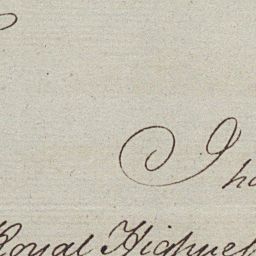 I
Royal Highness